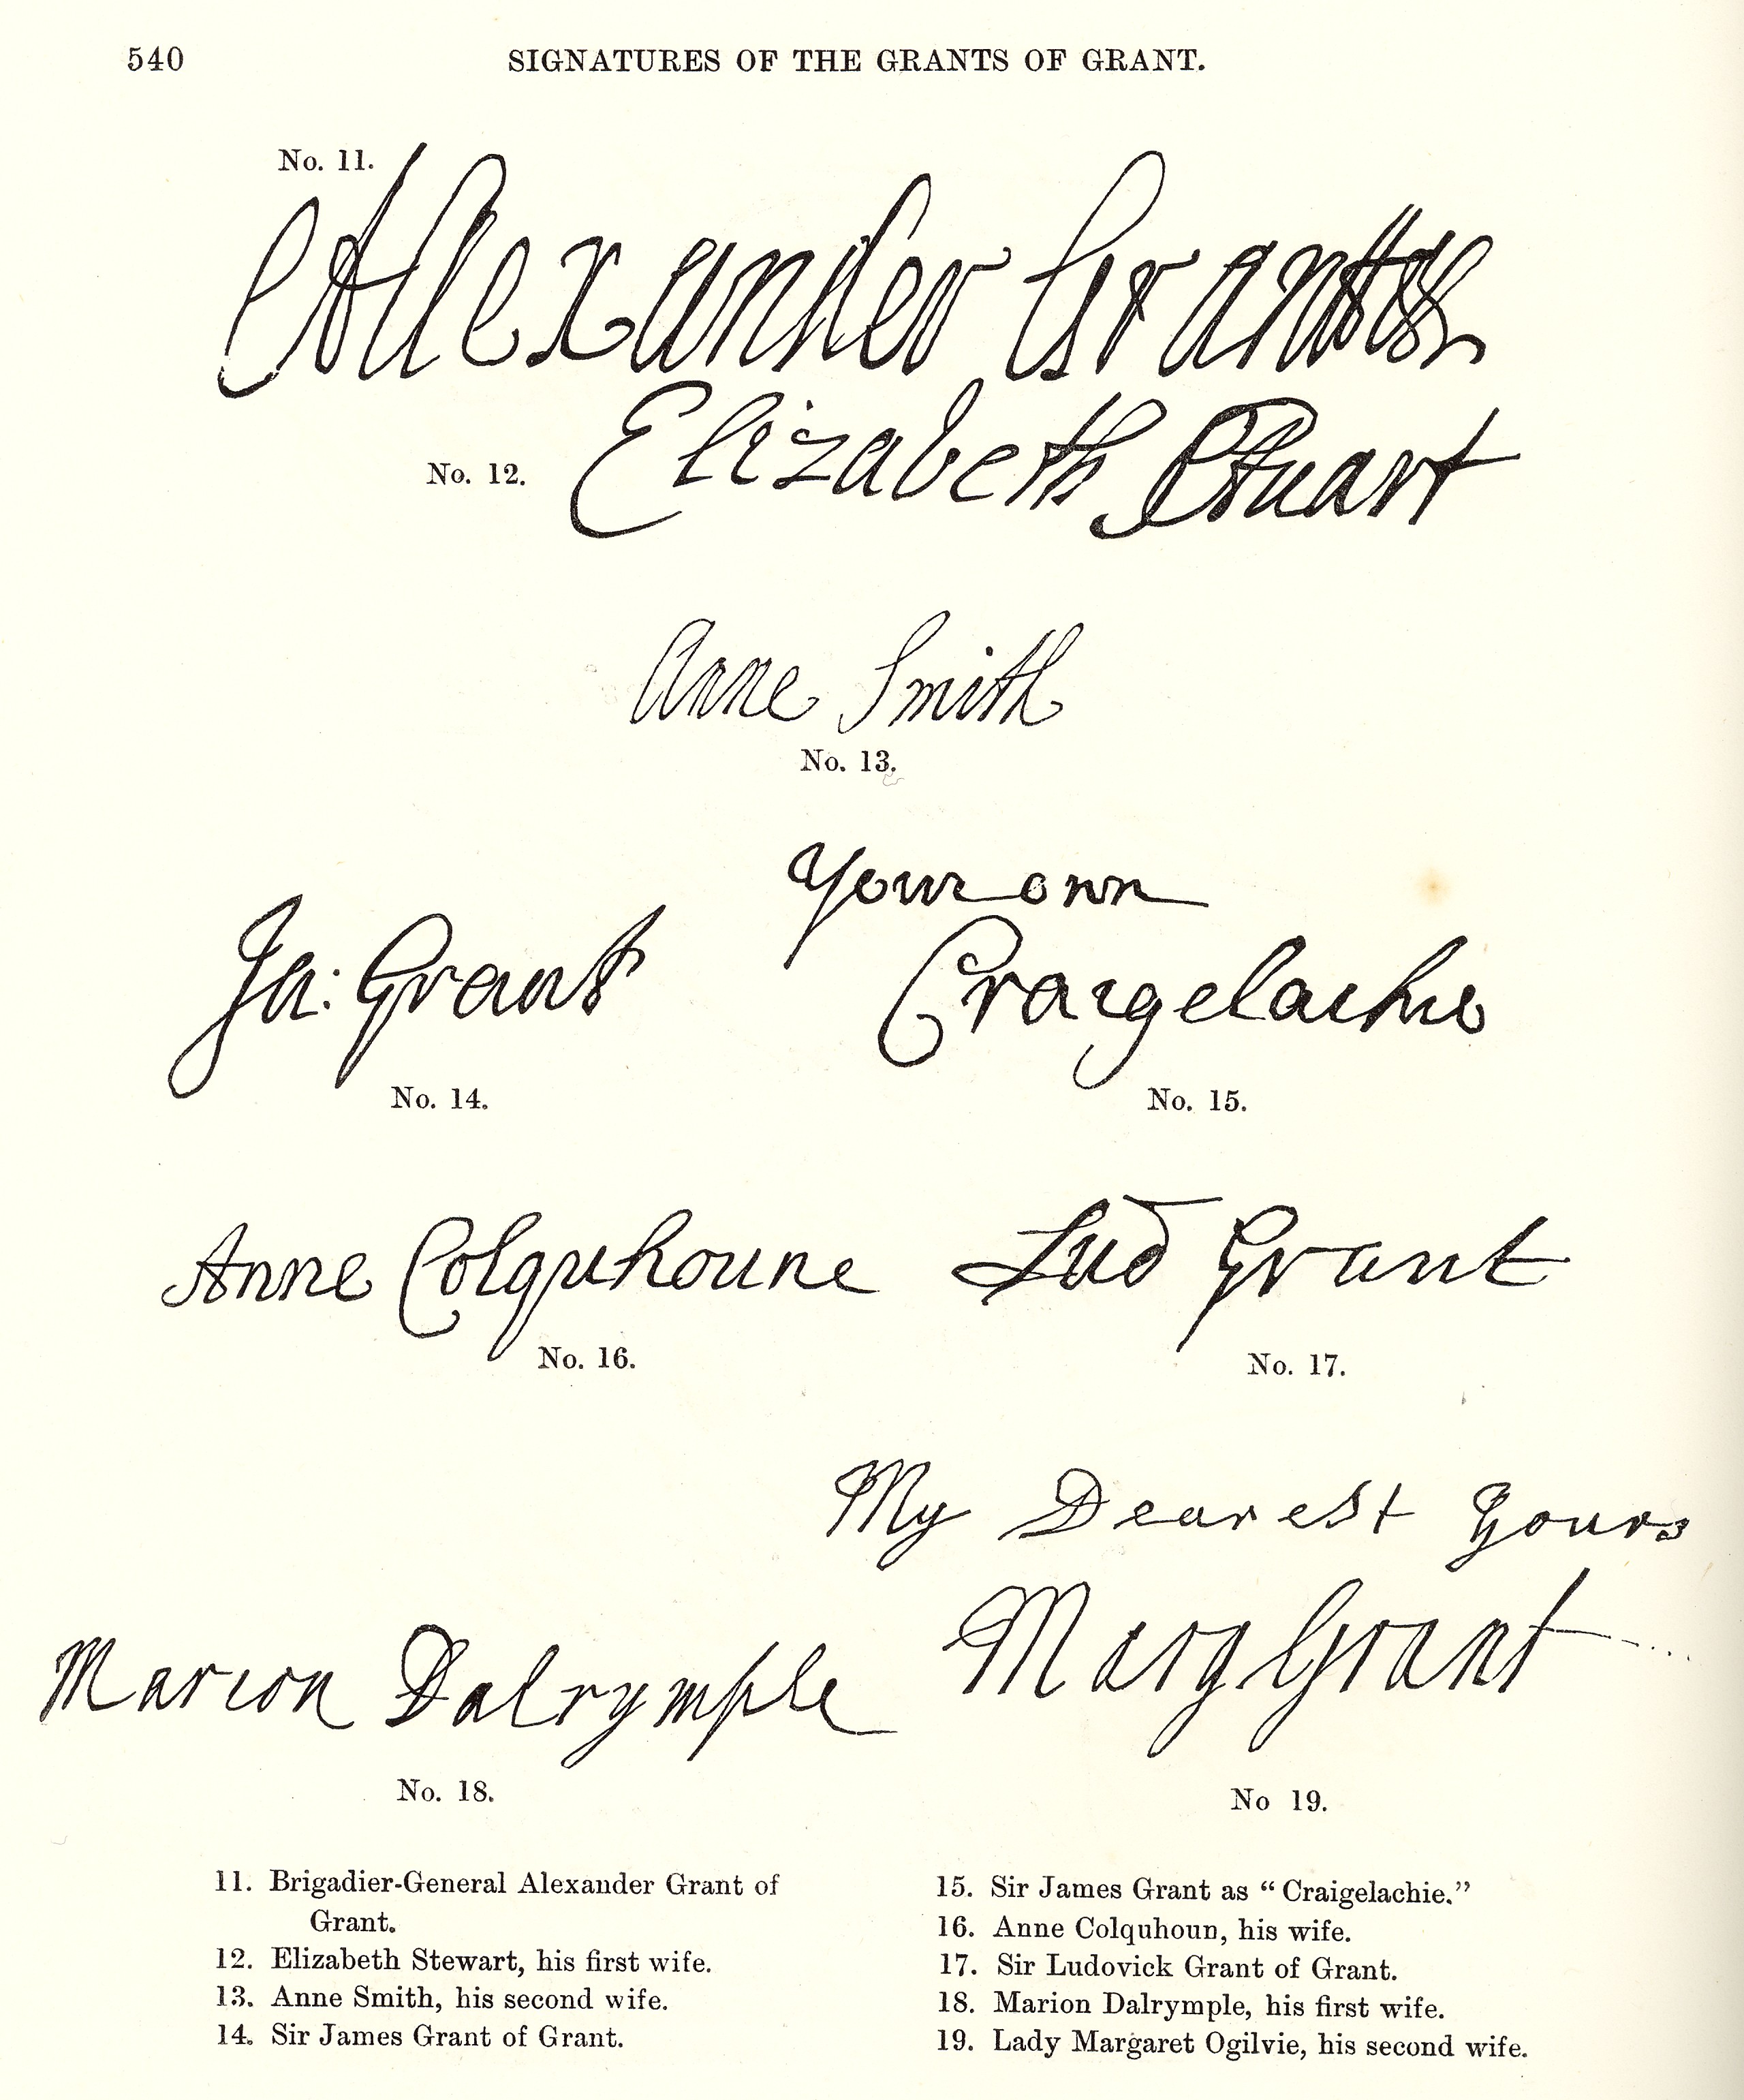 540
SIGNATURES OF THE GRANTS OF GRANT.
No. 11.
Alexander Grant
No. 12.
Elizabeth Stuart
Anne Smith
No. 13.
Your own
Ja: Grant
Craigelachie
No. 14.
No. 15.
Anne Colquhoune
Lud Grant
No. 16.
No. 17.
My Dearest Yours
Marg Grant
Marion Dalrymple
No. 18.
No 19.
11. Brigadier-General Alexander Grant of
Grant.
12. Elizabeth Stewart, his first wife.
13. Anne Smith, his second wife.
14. Sir James Grant of Grant.
15. Sir James Grant as “Craigelachie.”
16. Anne Colquhoun, his wife.
17. Sir Ludovick Grant of Grant.
18. Marion Dalrymple, his first wife.
19. Lady Margaret Ogilvie, his second wife.